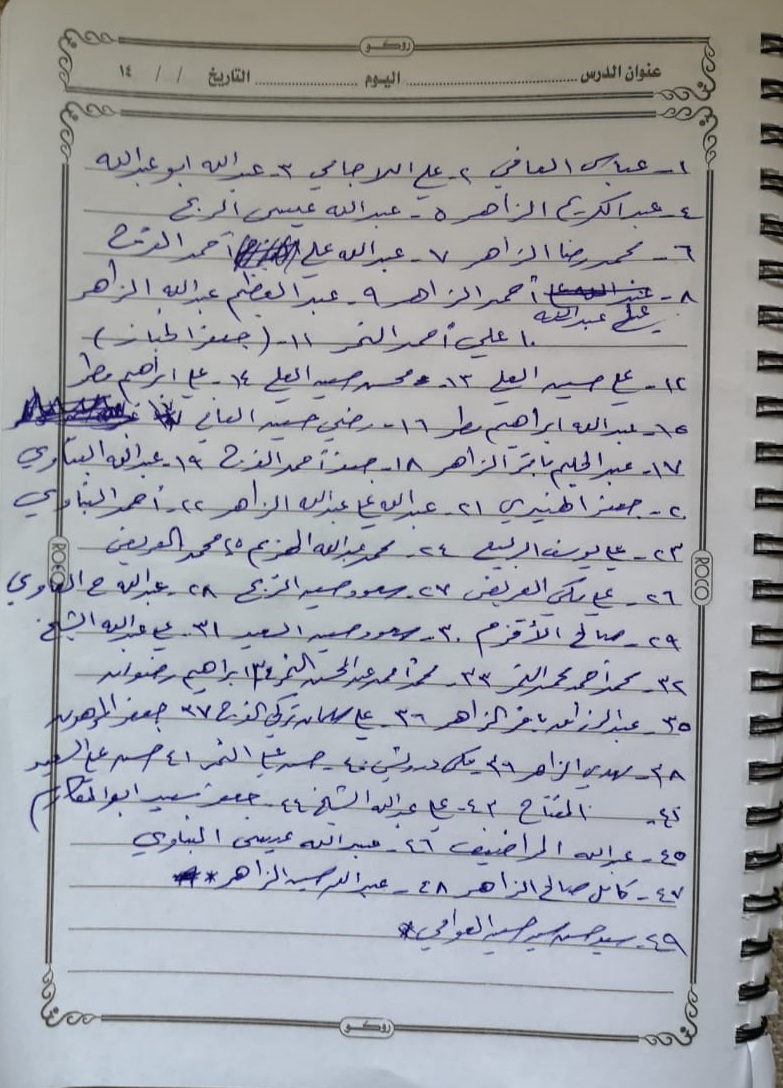 روكو
عنوان الدرس ........ اليوم ........ التاريخ / / ١٤
١- عباس العافي ٢- علي اللاجامي ٣- عبدالله ابو عبدالله
٤- عبدالكريم الزاهر ٥- عبدالله عيسى الربح
٦- محمد رضا الزاهر ٧- عبدالله علي أحمد الفرج
٨- أحمد الزاهر ٩- عبدالعظيم عبدالله الزاهر
علي عبدالله
١٠ علي أحمد النمر ١١- (جعفر الخباز)
١٢- علي حسين العلي ١٣- محسن حسين العلي ١٤- علي ابراهيم مطر
١٥- عبدالله ابراهيم مطر ١٦- رضي حسين العافي
١٧- عبدالحليم باقر الزاهر ١٨- جعفر أحمد الفرج ١٩- عبدالله البناوي
٢٠- جعفر الهنيدي ٢١- عبدالله علي عبدالله الزاهر ٢٢- أحمد البناوي
٢٣- علي يوسف الربيع ٢٤- محمد عبدالله الهزيم ٢٥ محمد العريض
٢٦- علي مكي العريض ٢٧- سعود حسين الربح ٢٨- عبدالله ح
٢٩- صالح الأقزم ٣٠- سعود حسين السعيد ٣١- علي عبدالله الشيخ
٣٢- محمد أحمد محمد النمر ٣٣- محمد أحمد عبدالمحسن النمر ٣٤ ابراهيم رضوان
٣٥- عبدالرزاق باقر الزاهر ٣٦- علي سلمان تركي الفرج ٣٧ جعفر المرهون
٣٨- مهدي الزاهر ٣٩- مكي درويش ٤٠- حسن علي النمر ٤١ حسن علي السعيد
٤٢- المفتاح ٤٣- علي عبدالله الشيخ ٤٤- جعفر سعيد ابو المكارم
٤٥- عبدالله ٤٦- عبدالله عيسى البناوي
٤٧- كامل صالح الزاهر ٤٨- عبدالله حسين الزاهر *
٤٩- سيد حسن سيد حسين العوامي *
روكو
ROCO
ROCO